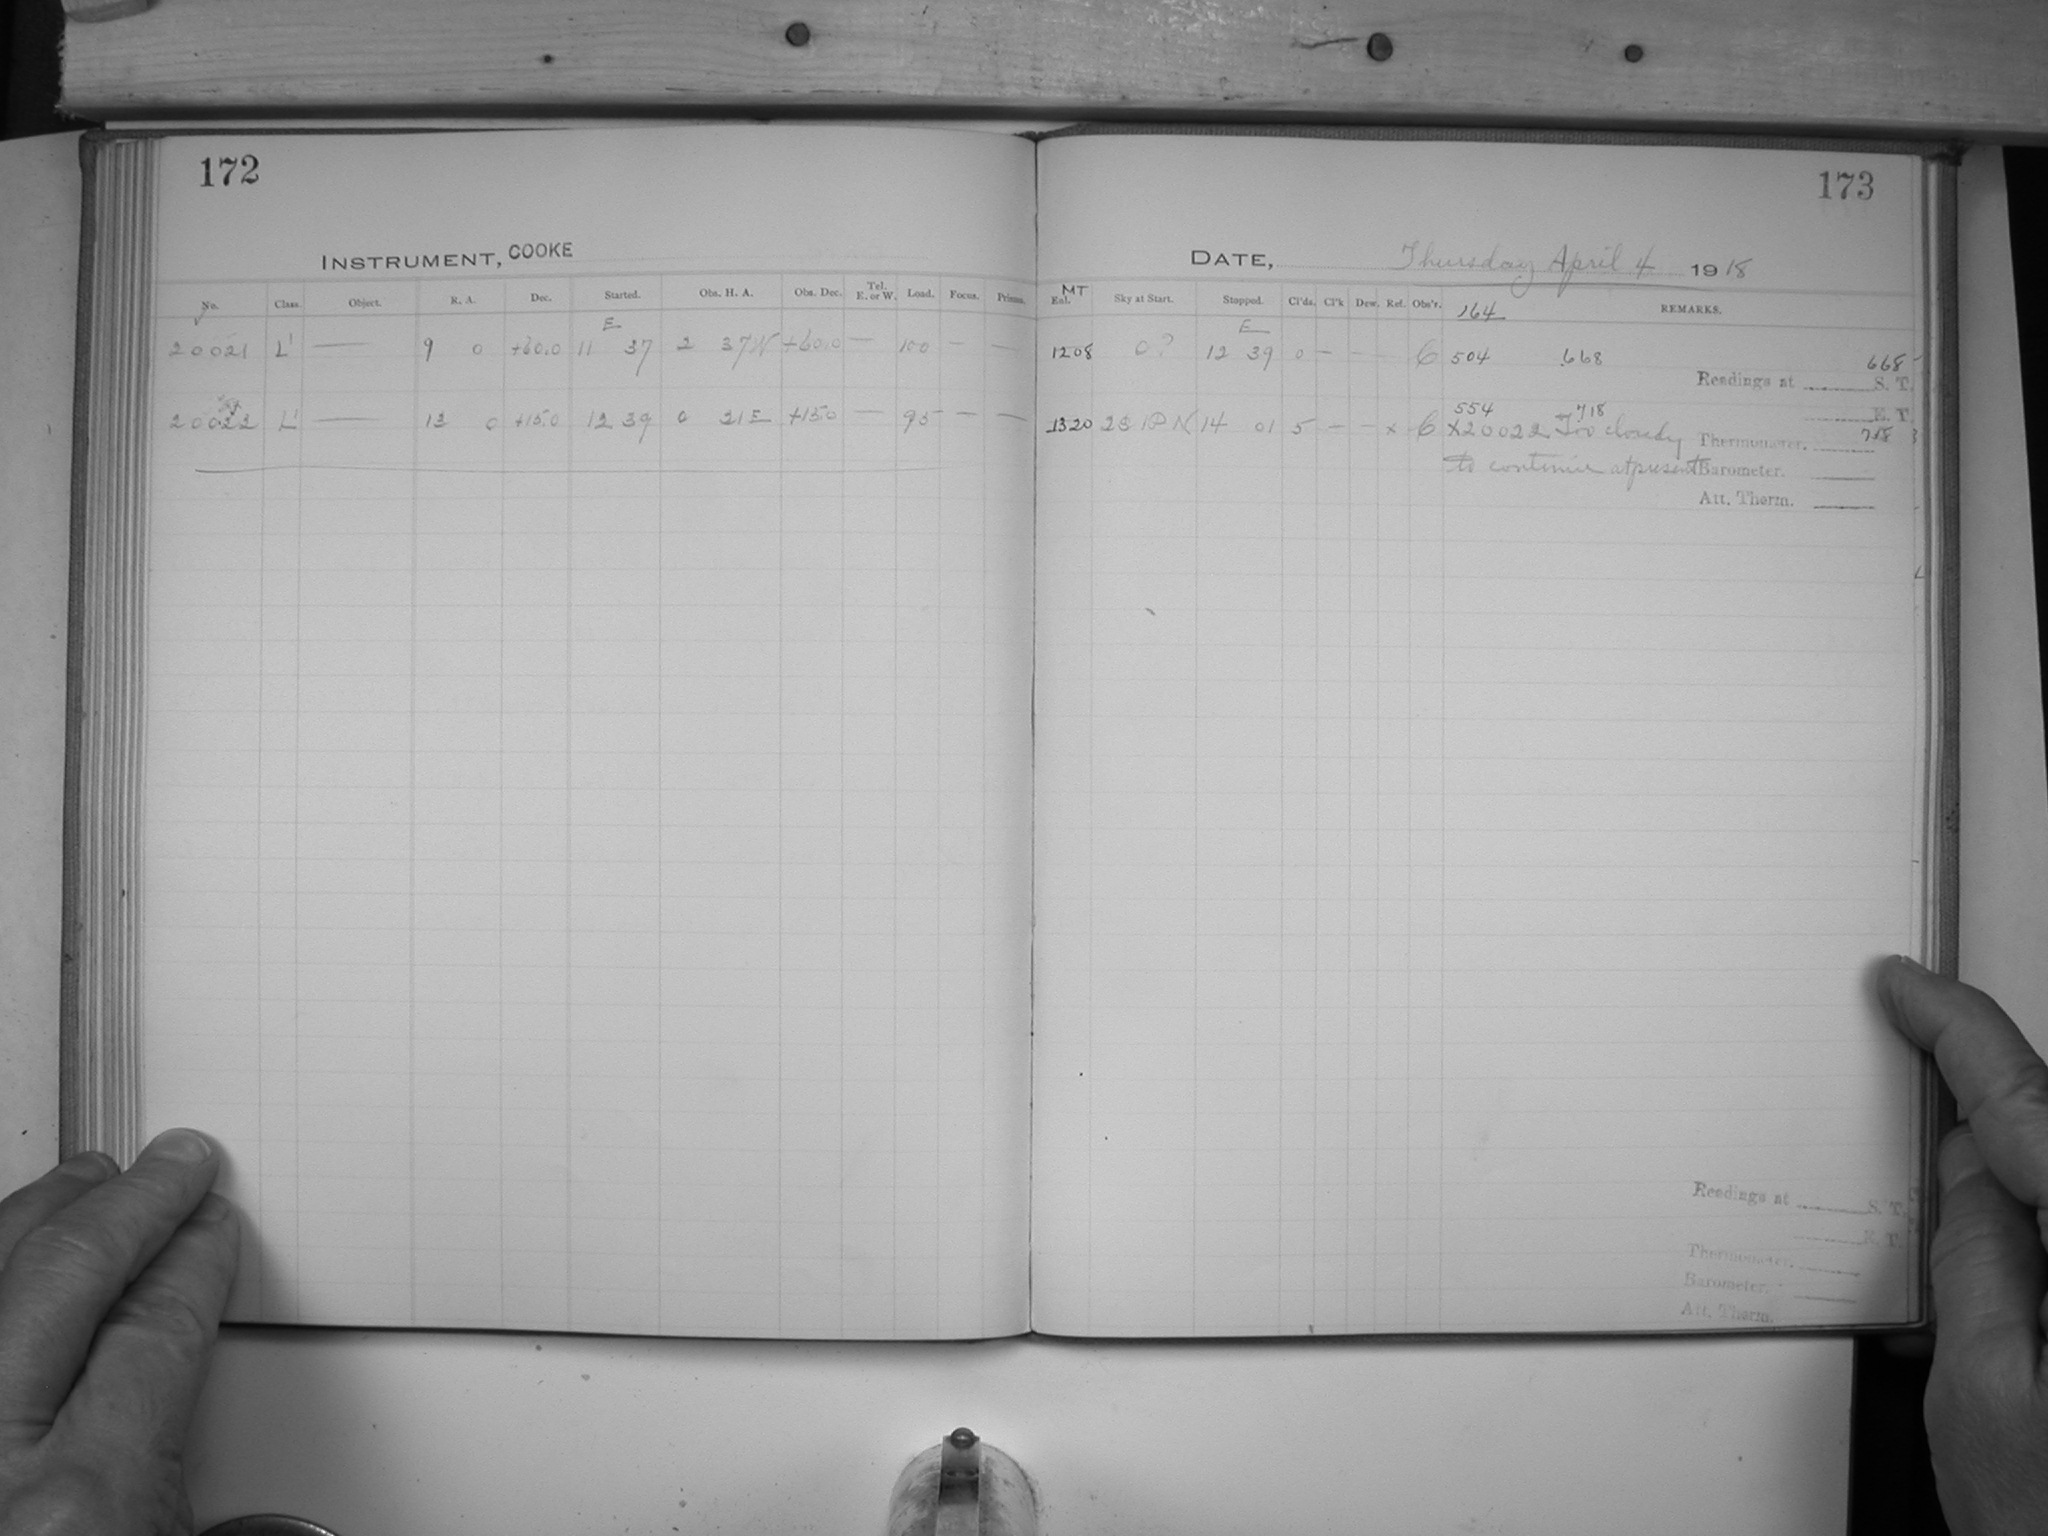 172
173
INSTRUMENT, COOKE
DATE, Thursday April 4 1918
No. Class. Object. R. A. Dec. Started. Obs. H. A. Obs. Dec. Tel. E. or W. Load. Focus. Prisms.
MT Eql. Sky at Start. Stopped. Cl'ds. Cl'k Dew. Ref. Obs'r. 164 REMARKS.
E
E
20021 L' — 9 0 +60.0 11 37 2 37W +60.0 — 100 — —
1208 0? 12 39 0 — — 6 504 668 668
Readings at S. T.
E. T.
554 718
20022 L' — 13 0 +15.0 12 39 0 21E +15.0 — 95 — —
1320 14 01 5 — — x 6 X20022 Too cloudy
718
Thermometer.
to continue at present
Barometer.
Att. Therm.
Readings at S. T.
E. T.
Thermometer.
Barometer.
Att. Therm.